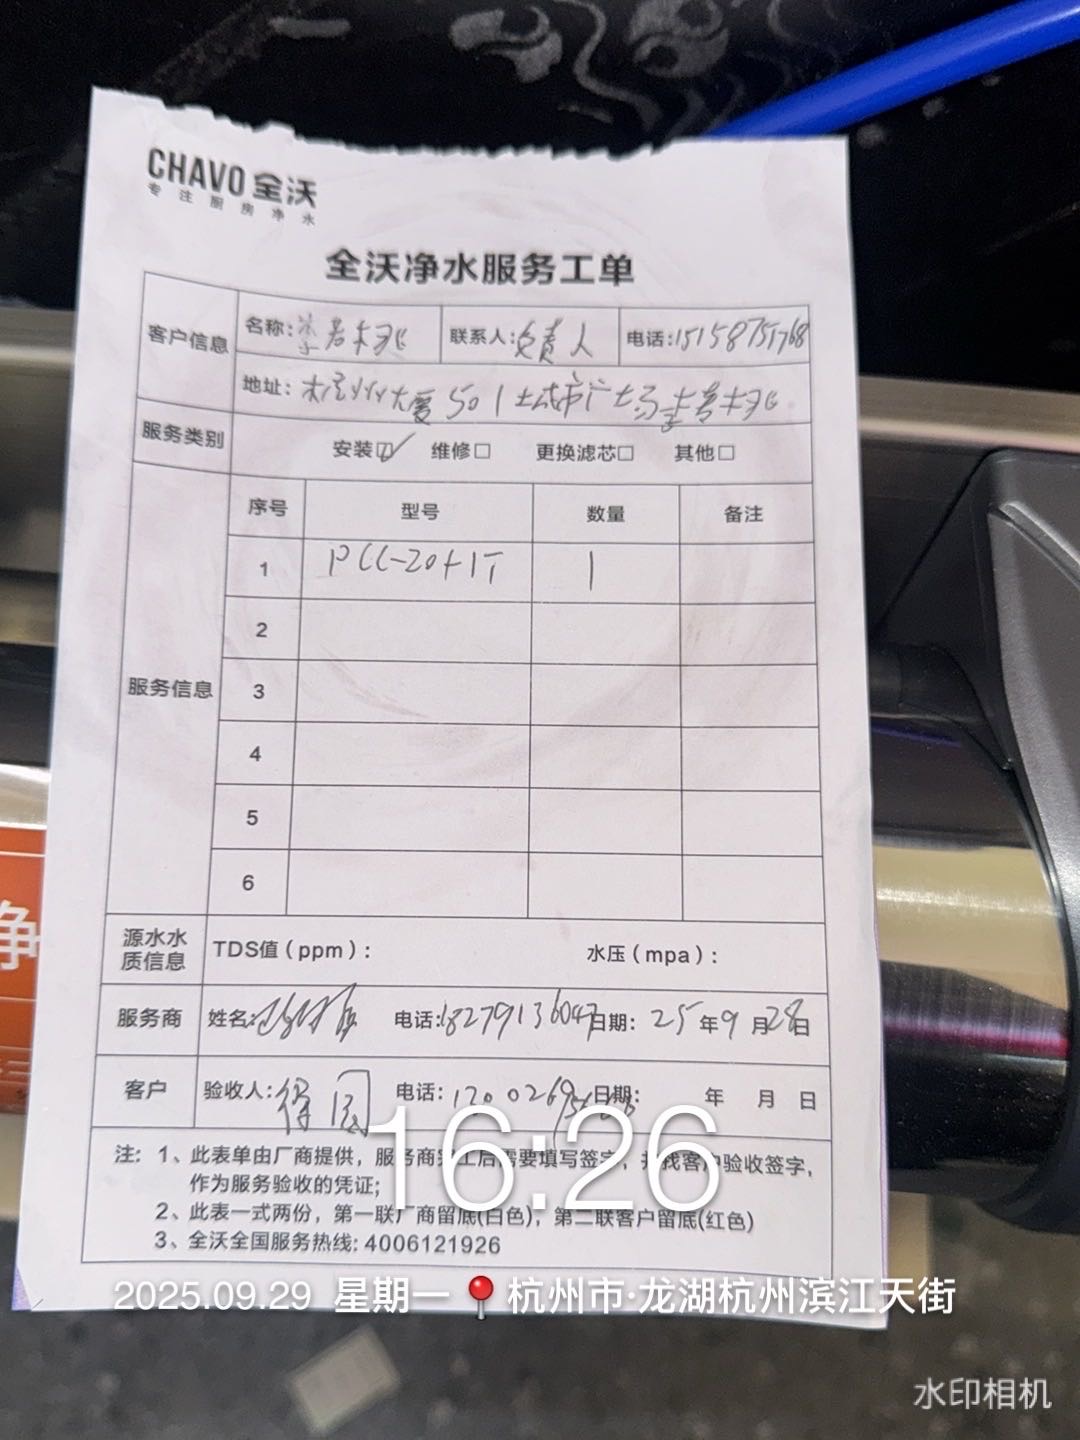 CHAVO 全沃
专注厨房净水
全沃净水服务工单
客户信息
名称:
联系人:负责人
电话:15158751768
地址: 杭州大厦501城市广场
服务类别
安装☑ 维修□ 更换滤芯□ 其他□
服务信息
序号 型号 数量 备注
1 PCC-20+1T 1
2
3
4
5
6
源水水质信息
TDS值(ppm): 水压(mpa):
服务商 姓名: 电话:18279136047 日期: 25年9月28日
客户 验收人: 电话: 日期: 年 月 日
注: 1、此表单由厂商提供,服务商完工后需要填写签字,并找客户验收签字,
作为服务验收的凭证;
2、此表一式两份,第一联厂商留底(白色),第二联客户留底(红色)
3、全沃全国服务热线:4006121926
16:26
2025.09.29 星期一 杭州市·龙湖杭州滨江天街
水印相机
净